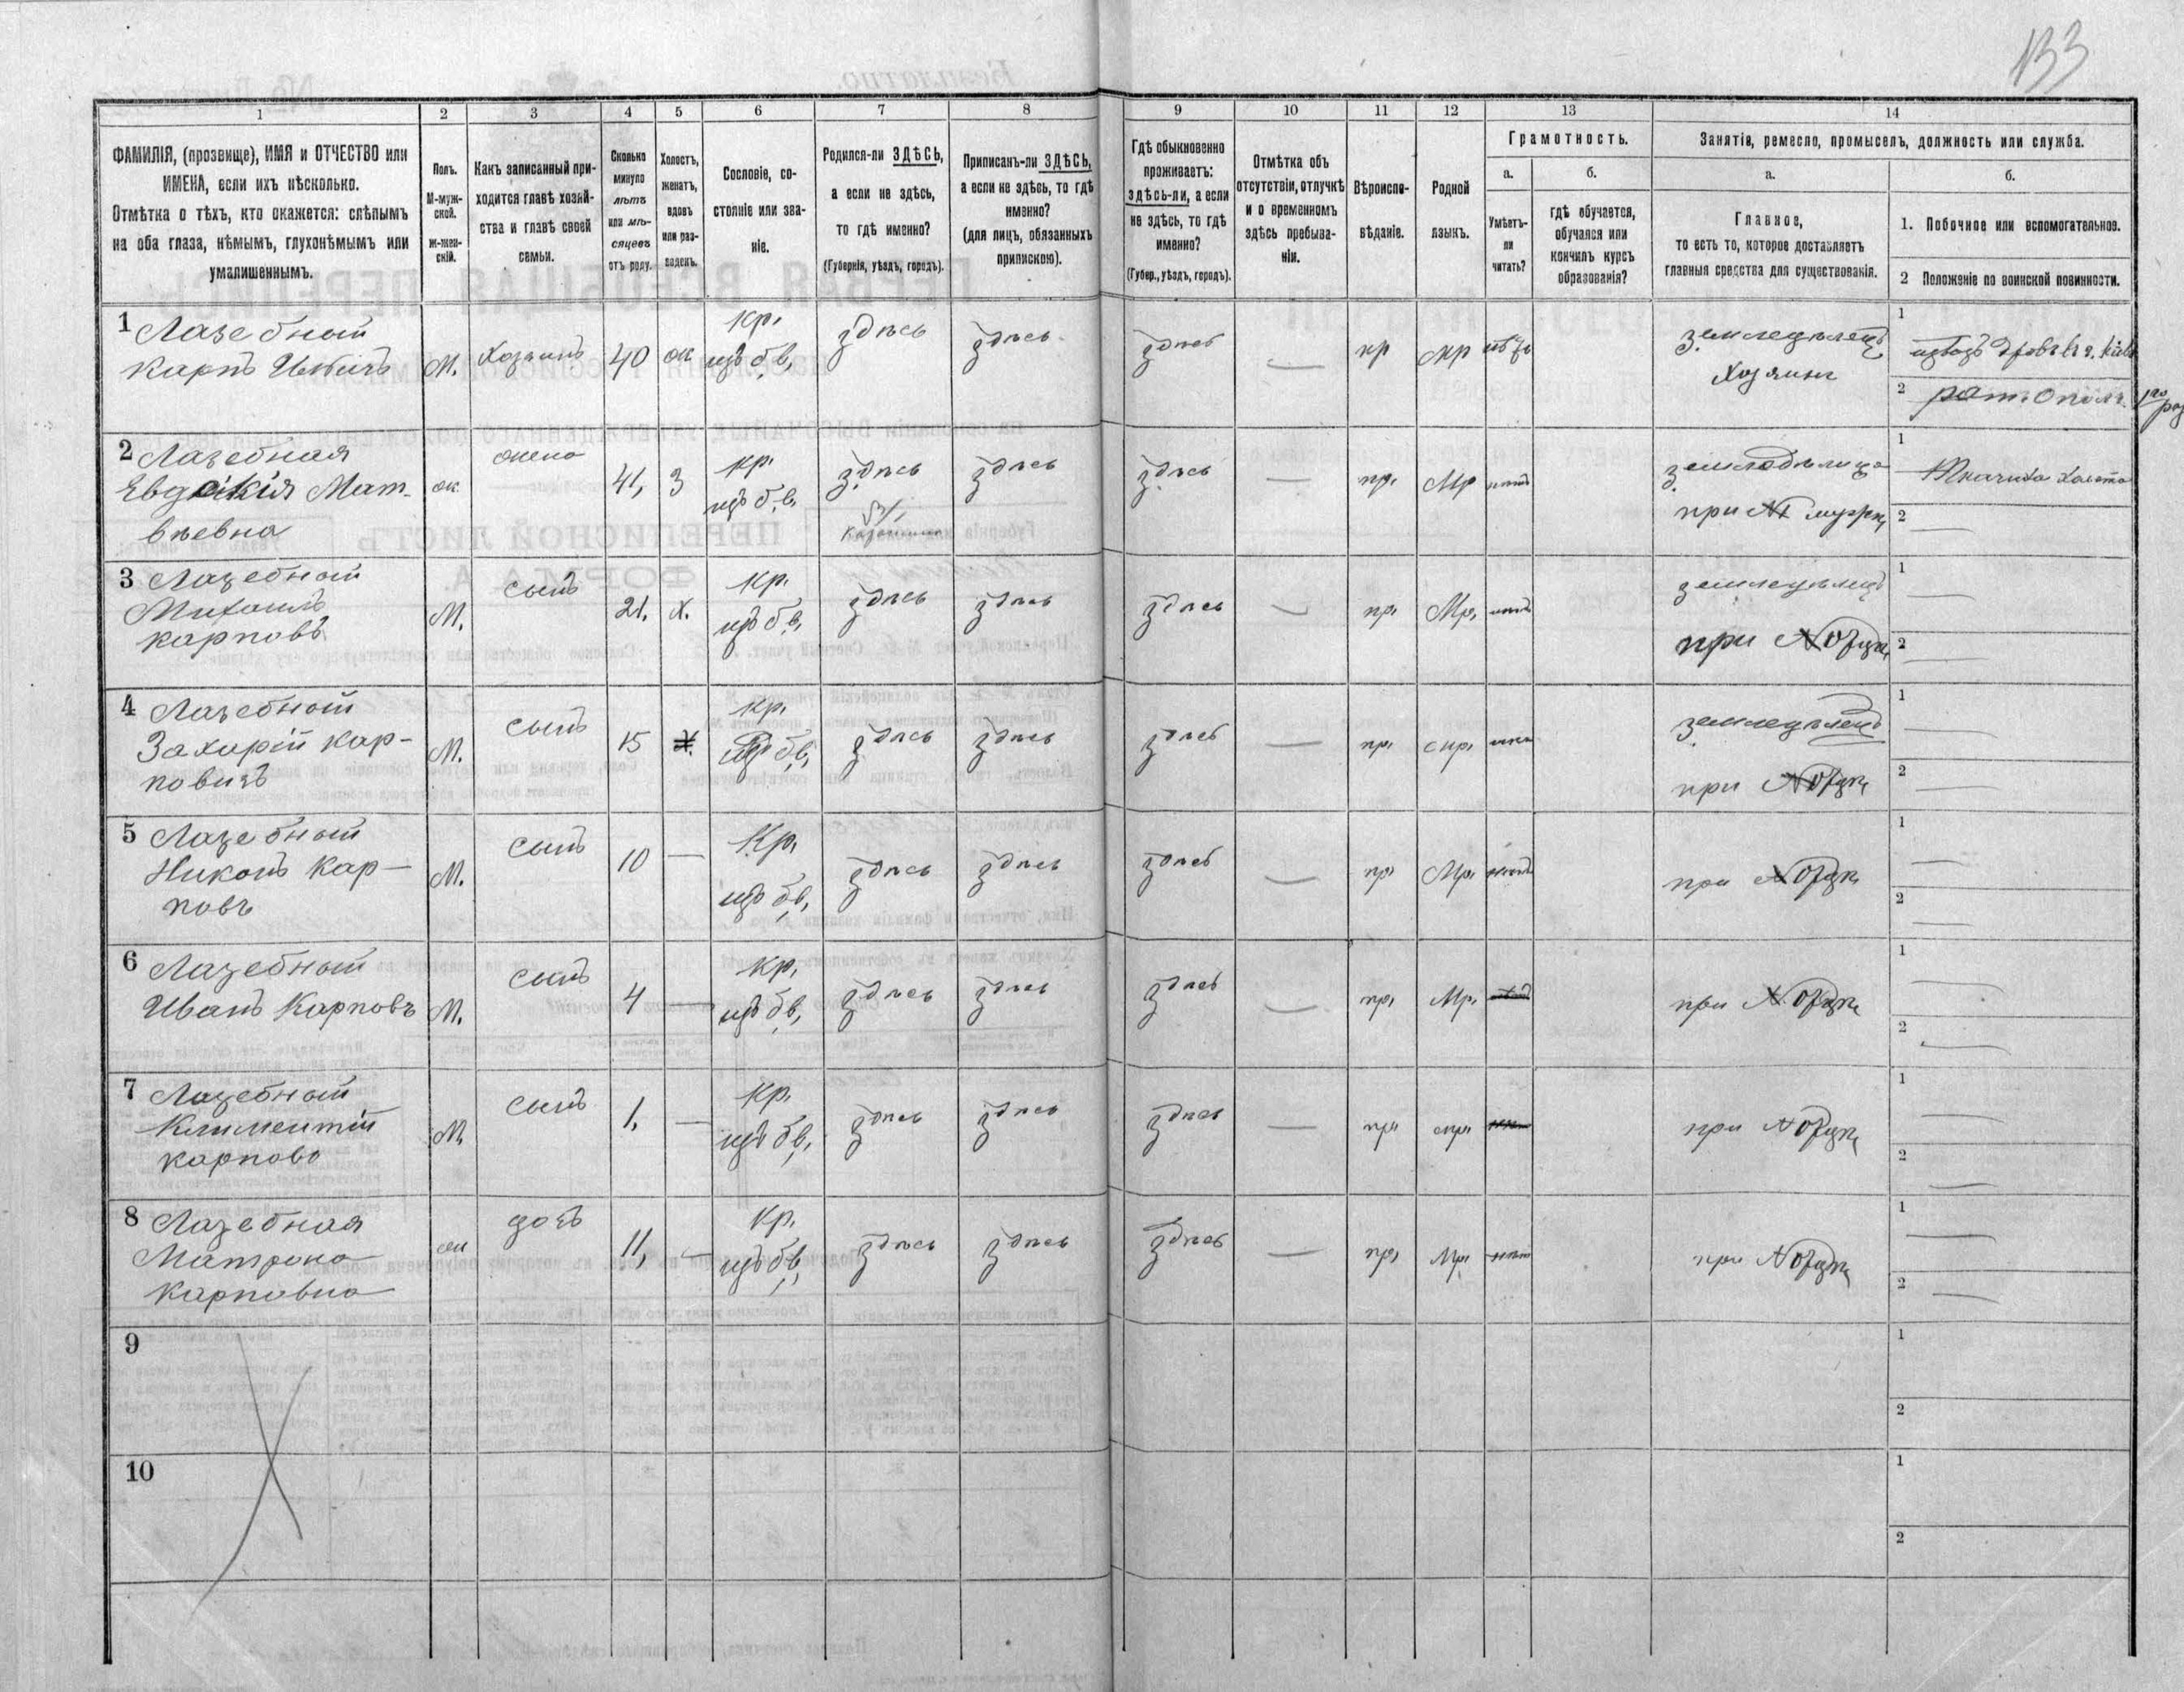 133
1
2
3
4
5
6
7
8
9
10
11
12
13
14
ФАМИЛІЯ, (прозвище), ИМЯ и ОТЧЕСТВО или
ИМЕНА, если ихъ нѣсколько.
Отмѣтка о тѣхъ, кто окажется: слѣпымъ
на оба глаза, нѣмымъ, глухонѣмымъ или
умалишеннымъ.
Полъ.
М-муж-
ской.
Ж-жен-
скій.
Какъ записанный при-
ходится главѣ хозяй-
ства и главѣ своей
семьи.
Сколько
минуло
лѣтъ
или мѣ-
сяцевъ
отъ роду.
Холостъ,
женатъ,
вдовъ
или раз-
веденъ.
Сословіе, со-
стояніе или зва-
ніе.
Родился-ли ЗДѢСЬ,
а если не здѣсь,
то гдѣ именно?
(Губернія, уѣздъ, городъ).
Приписанъ-ли ЗДѢСЬ,
а если не здѣсь, то гдѣ
именно?
(для лицъ, обязанныхъ
припискою).
Гдѣ обыкновенно
проживаетъ:
здѣсь-ли, а если
не здѣсь, то гдѣ
именно?
(Губер., уѣздъ, городъ).
Отмѣтка объ
отсутствіи, отлучкѣ
и о временномъ
здѣсь пребыва-
ніи.
Вѣроиспо-
вѣданіе.
Родной
языкъ.
Грамотность.
а.
Умѣетъ-
ли
читать?
б.
гдѣ обучается,
обучался или
кончилъ курсъ
образованія?
Занятіе, ремесло, промыселъ, должность или служба.
а.
Главное,
то есть то, которое доставляетъ
главныя средства для существованія.
б.
1. Побочное или вспомогательное.
2 Положеніе по воинской повинности.
1 Лазебный
Карпъ
М. Хозяинъ 40 ж
кр.
изъ б.в,
здѣсь здѣсь здѣсь — пр мр
земледѣлецъ
Хозяинъ
1
2 рат. ополч. 1го раз
2 Лазебная
Евдокія Мат-
вѣевна
ж жена 41, З
кр.
изъ б.в,
здѣсь здѣсь здѣсь — пр. Мр нѣтъ
при мужѣ
1 Ткачиха холста
2 —
3 Лазебный
Михаилъ
карповъ
М. сынъ 21. х.
кр.
изъ б.в,
здѣсь здѣсь здѣсь — пр. Мр, нѣтъ
земледѣлецъ
при N отцѣ
1 —
2 —
4 Лазебный
Захарій кар-
повичъ
М. сынъ 15 х.
кр.
изъ б.в,
здѣсь здѣсь здѣсь — пр. мр.
земледѣлецъ
при N отцѣ
1 —
2 —
5 Лазебный
Никонъ Кар-
повъ
М. сынъ 10 —
Кр,
изъ б.в,
здѣсь здѣсь здѣсь — пр Мр. нѣтъ
при N отцѣ
1 —
2 —
6 Лазебный
Иванъ Карповъ
М. сынъ 4 —
Кр,
изъ б.в,
здѣсь здѣсь здѣсь — пр, Мр.
при N отцѣ
1 —
2 —
7 Лазебный
Климентій
карповъ
М, сынъ 1. —
Кр.
изъ б.в,
здѣсь здѣсь здѣсь — пр мр
при N отцѣ
1 —
2 —
8 Лазебная
Матрона
Карповна
ж дочь 11, —
Кр.
изъ б.в,
здѣсь здѣсь здѣсь — пр, Мр. нѣт
при N отцѣ
1 —
2 —
9
1
2
10
1
2